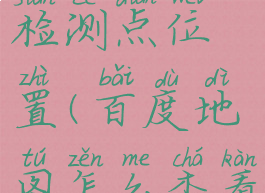 检测点位
zhì bǎi dù dì
置(百度地
tú zěn me chá kàn
图怎么查看